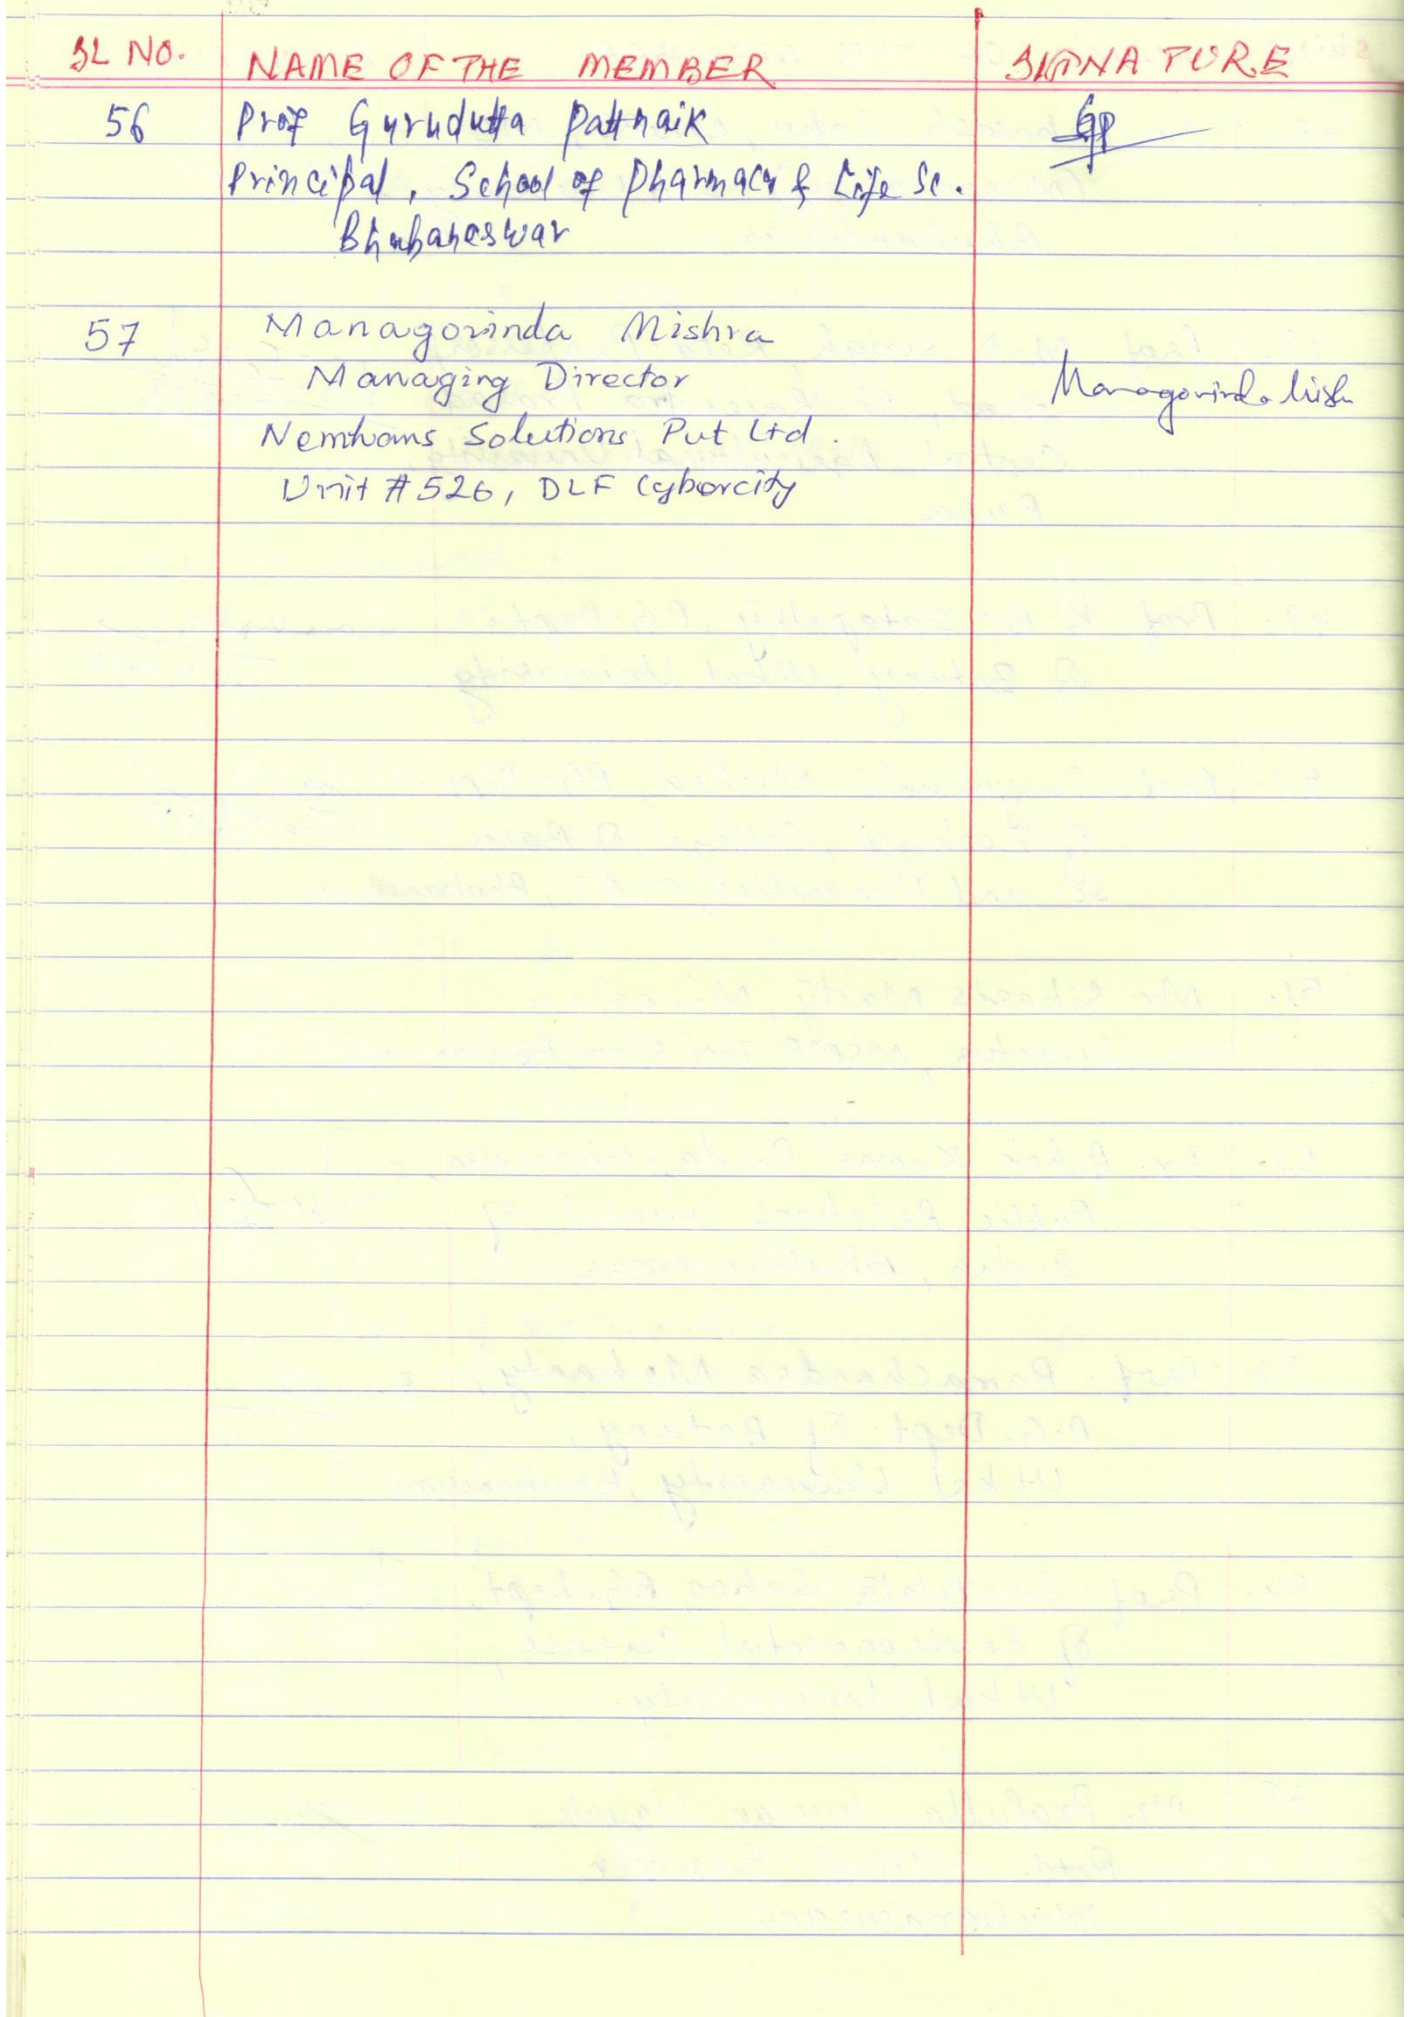 SL NO. NAME OF THE MEMBER SIGNATURE
56 Prof Gurudutta Pattnaik GP
Principal, School of Pharmacy & Life Sc.
Bhubaneswar
57 Managovinda Mishra
Managing Director Managovinda Mish
Solutions Pvt Ltd.
Unit #526, DLF Cybercity